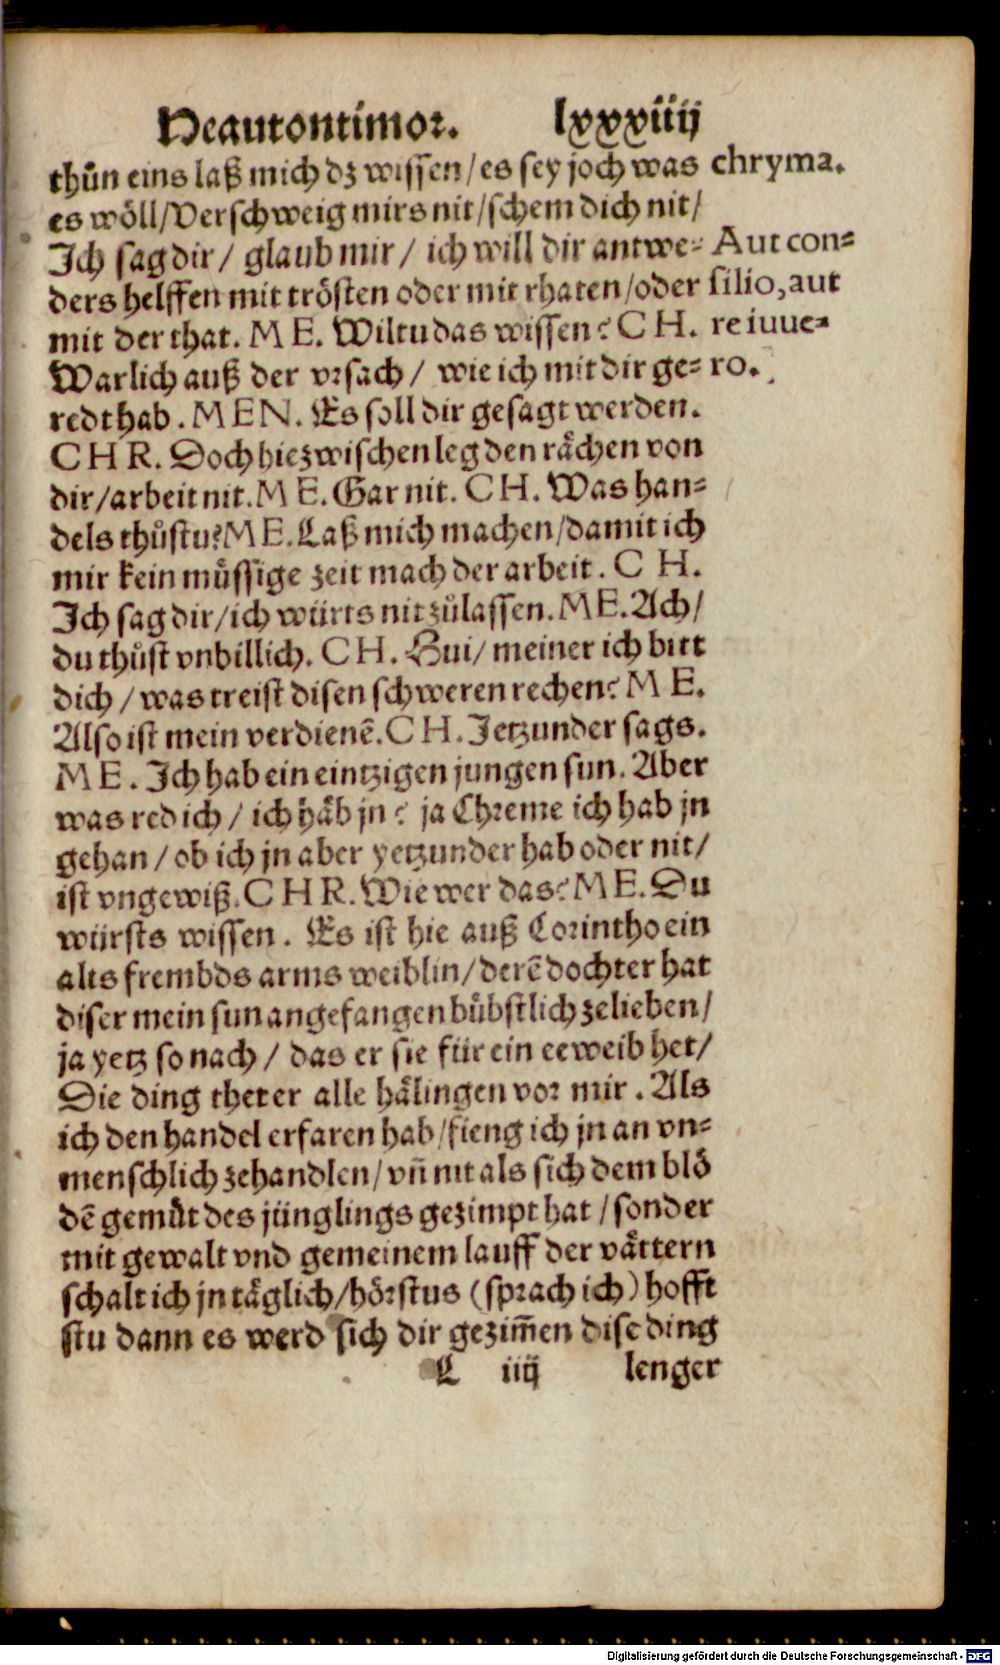 Heautontimor. lxxxiiij
thůn eins laß mich dz wissen/es sey joch was chryma.
es wöll/Verschweig mirs nit/schem dich nit/
Ich sag dir/ glaub mir/ ich will dir antwe- Aut con-
ders helffen mit trösten oder mit rhaten/oder silio, aut
mit der that. ME. Wiltu das wissen? CH. re iuue-
Warlich auß der vrsach/ wie ich mit dir ge- ro.
redt hab. MEN. Es soll dir gesagt werden.
CHR. Doch hiezwischen leg den rächen von
dir/arbeit nit. ME. Gar nit. CH. Was han-
dels thůstu? ME. Laß mich machen/damit ich
mir kein müssige zeit mach der arbeit. CH.
Ich sag dir/ich würts nit zůlassen. ME. Ach/
du thůst vnbillich. CH. Hui/ meiner ich bitt
dich/was treist disen schweren rechen? ME.
Also ist mein verdienē. CH. Jetzunder sags.
ME. Ich hab ein eintzigen jungen sun. Aber
was red ich/ ich häb jn? ja Chreme ich hab jn
gehan/ob ich jn aber yetzunder hab oder nit/
ist vngewiß. CHR. Wie wer das? ME. Du
würsts wissen. Es ist hie auß Corintho ein
alts frembds arms weiblin/derē dochter hat
diser mein sun angefangen bübstlich zelieben/
ja yetz so nach/ das er sie für ein eeweib het/
Die ding thet er alle hälingen vor mir. Als
ich den handel erfaren hab/fieng ich jn an vn-
menschlich zehandlen/vñ nit als sich dem blö
dē gemůt des jünglings gezimpt hat/sonder
mit gewalt vnd gemeinem lauff der vättern
schalt ich jn täglich/hörstus (sprach ich) hofft
stu dann es werd sich dir gezim̄en dise ding
L iiij lenger
Digitalisierung gefördert durch die Deutsche Forschungsgemeinschaft - DFG